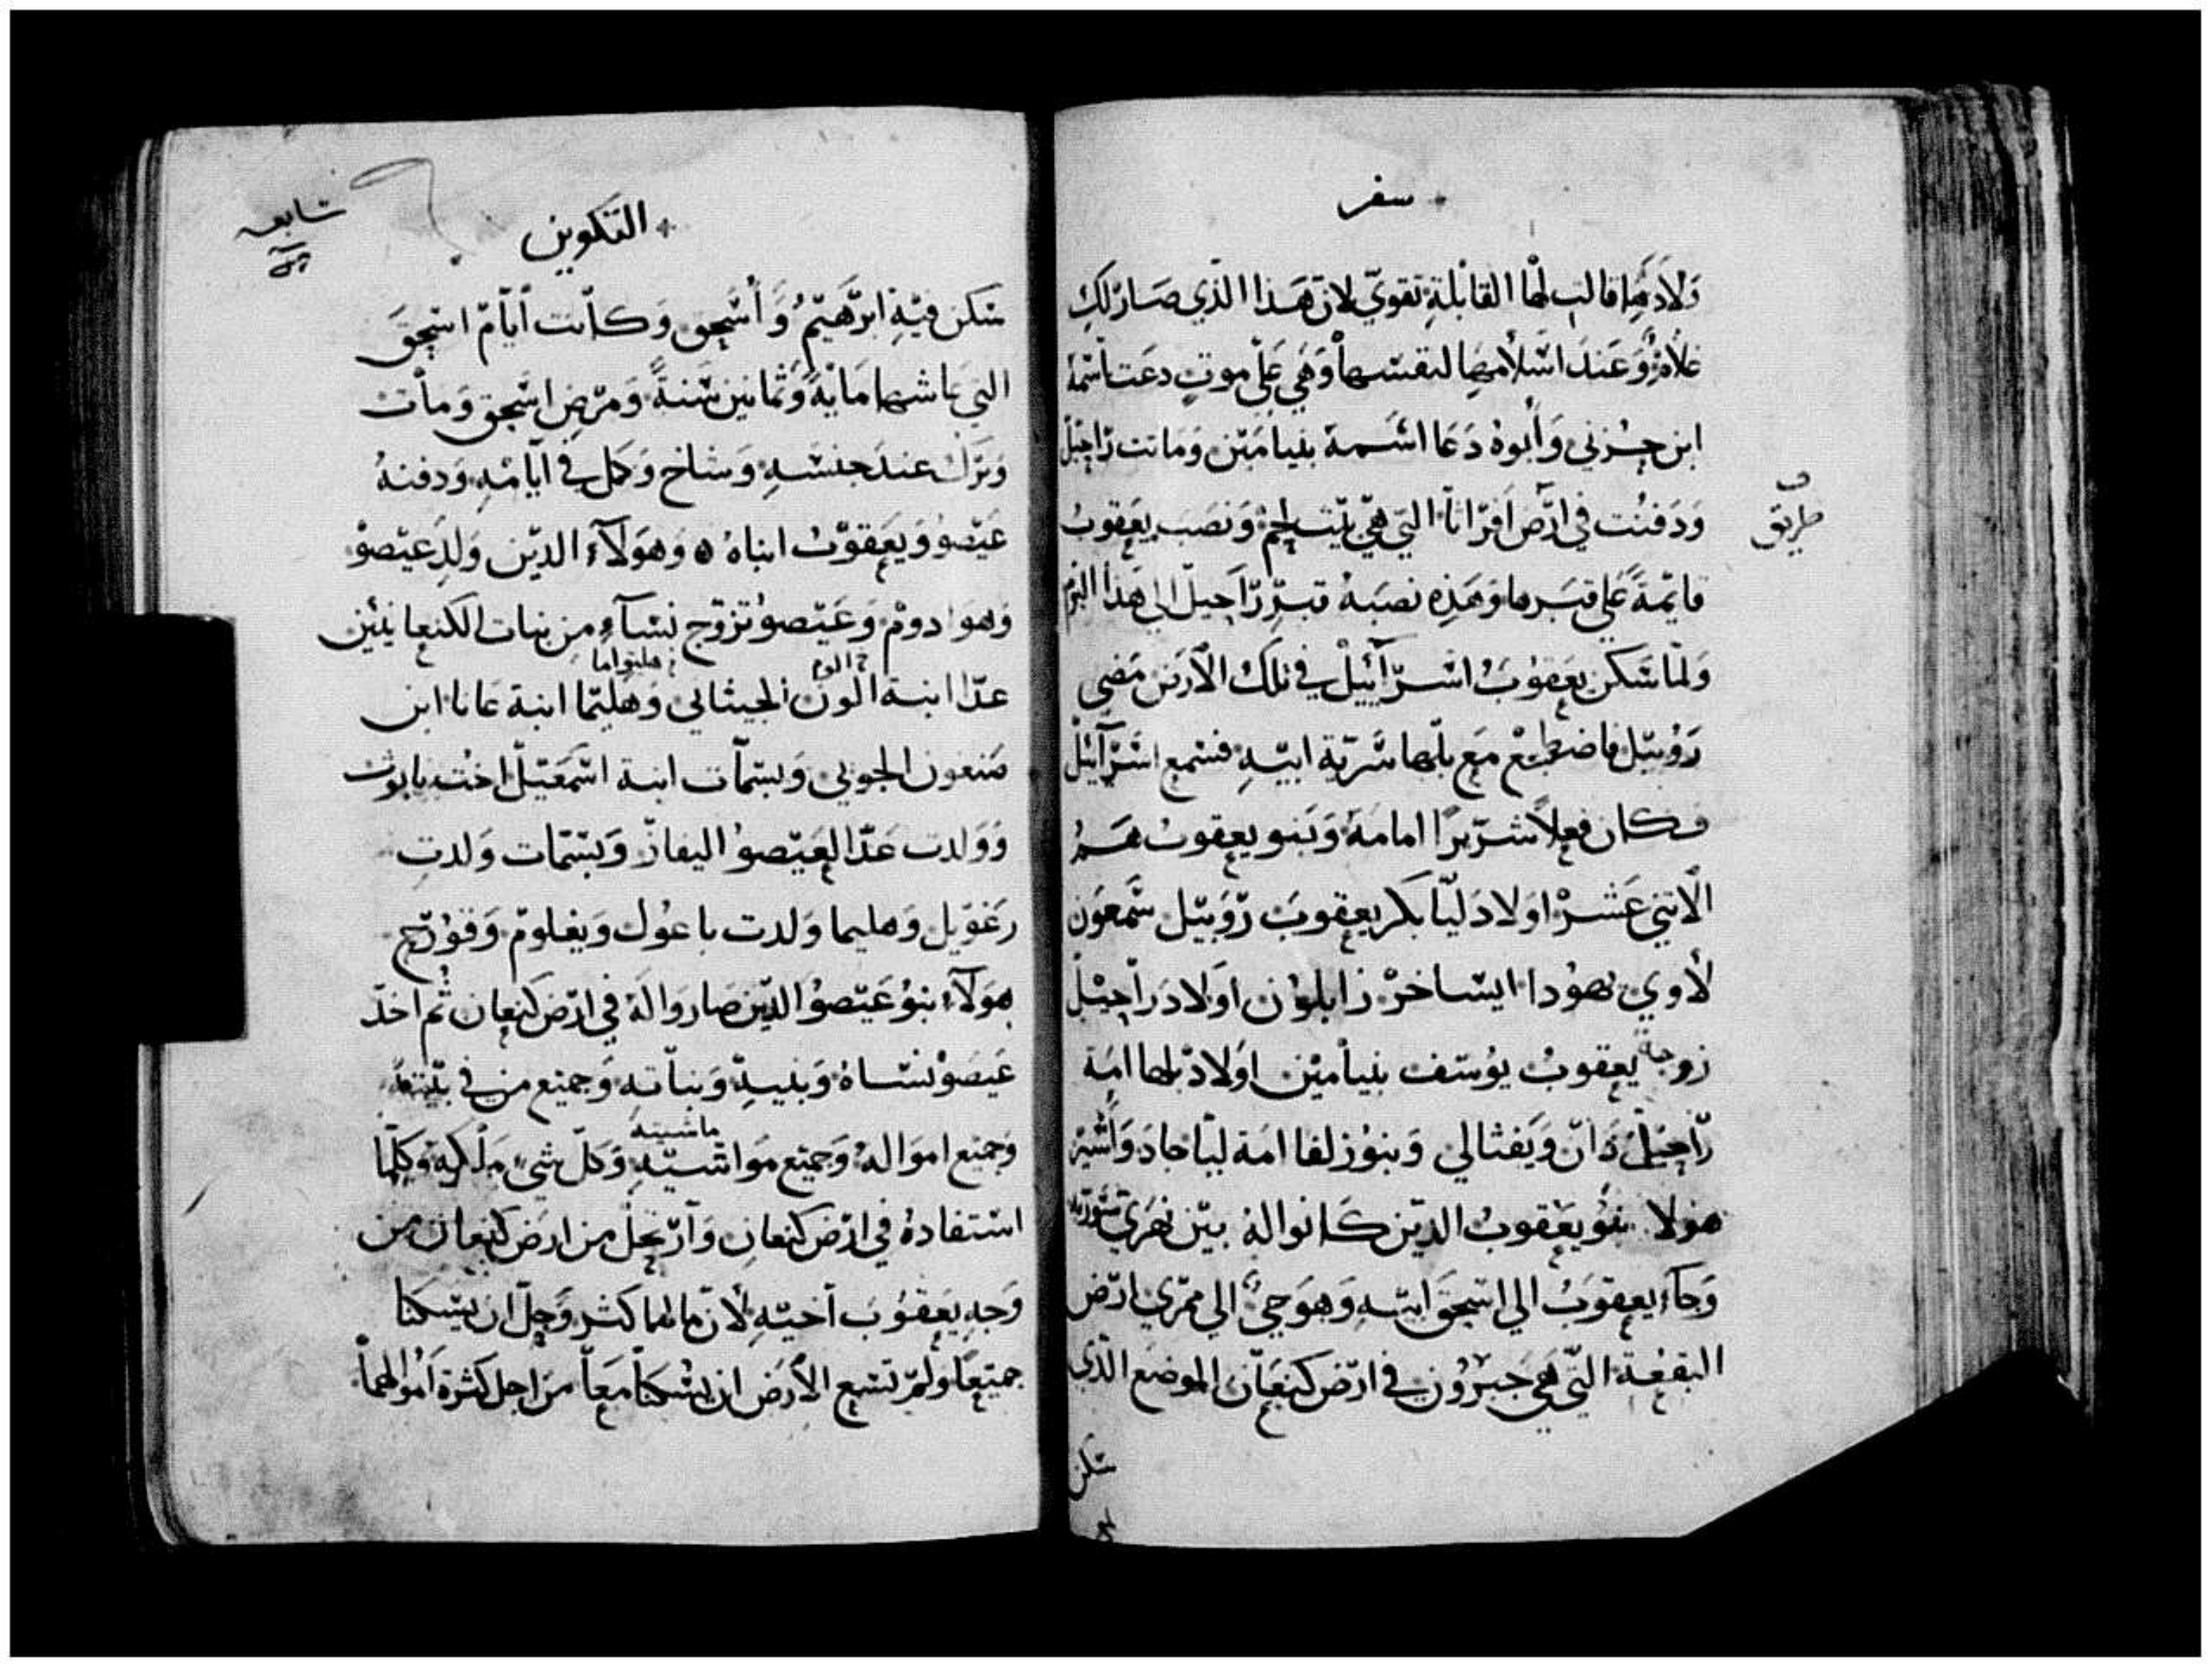 سفر
وَلادَهَا قالت لها القابلة تقوي لان هذا الذي صار لكِ
غلامٌ وَعند اسلامها لنفسها وَهي علي موتٍ دعت اسمه
ابن حزني وَأبوه دَعا اسمه بنيامين وَماتت راحيل
وَدفنت في ارض افراثا التي هي بيت لحم وَنصب يعقوب
طريق
قايمةً علي قبرها وَهذه نصبة قبر راحيل الي هذا اليوم
وَلما سَكن يعقوبُ اسرآييل في تلك الارض مضي
رَوُبيل فاضطجع مع بلها سرية ابيه فسمع اسرآييل
فكان فعلاً شريرًا امامه وَبنو يعقوب هم
الاثني عَشر اولاد ليّا بكر يعقوبَ رَوبيل شمعون
لاوي يهوُدا ايساخر زابلون اولاد راحيل
زوجة يعقوب يوُسف بنيامين اولاد بلها امة
راحيل دان وَيفثالي وَبنوُ زلفا امة ليّا جاد وَاشير
هولا بنوُ يعقوبُ الذين كانوا لهُ بين نهري سورية
وَجآء يعقوبُ الي اسحق ابيهِ وَهوَ حيٌ الي ممري ارض
البقعة التي هي حَبرُون في ارض كنعان الموضع الذي
سكن
التكوين
سابعه
سَكن فيهِ ابرهيمُ وَأسحق وَكانت أيام اسحق
التي عاشها مايةً وَثمانين سنةً وَمرض اسحق وَمات
وَترك عند جنسهِ وَشاخ وَكمل في أيامهِ وَدفنهُ
عَيصو وَيعقوبُ ابناهُ ه وَهولآء الذين وَلد عيصو
وَهو ادوم وَعَيصو تزوج نسآءٍ من بنات الكنعانيين
عدا ابنة الون الجيثاني وَهليما ابنة عانا ابن
صَنعون الجوني وَبسمات ابنة اسمعيل اخت نابوث
وَوَلدت عَدا لعَيصوُ اليفاز وَبسمات وَلدت
رَغوَيل وَهليما وَلدت باعوُل وَيغلوم وَقوُرح
هولآء بنوُ عَيصوُ الذين صاروا لهُ في ارض كنعان ثم اخذ
عَيصو نساهُ وَبنيهِ وَبناته وَجميع من في بيته
ماشيته
وَجميع اموالهُ وَجميع مَواشيهِ وَكل شيء ملكه وَكلما
استفادهُ في ارض كنعان وَارتحل من ارض كنعان من
وَجه يعقوب أخيهِ لان مالهما كثر وَجل ان يسكنا
جميعًا وَلم تسع الأرض ان يسكنا معاً من اجل كثرة اموالهما